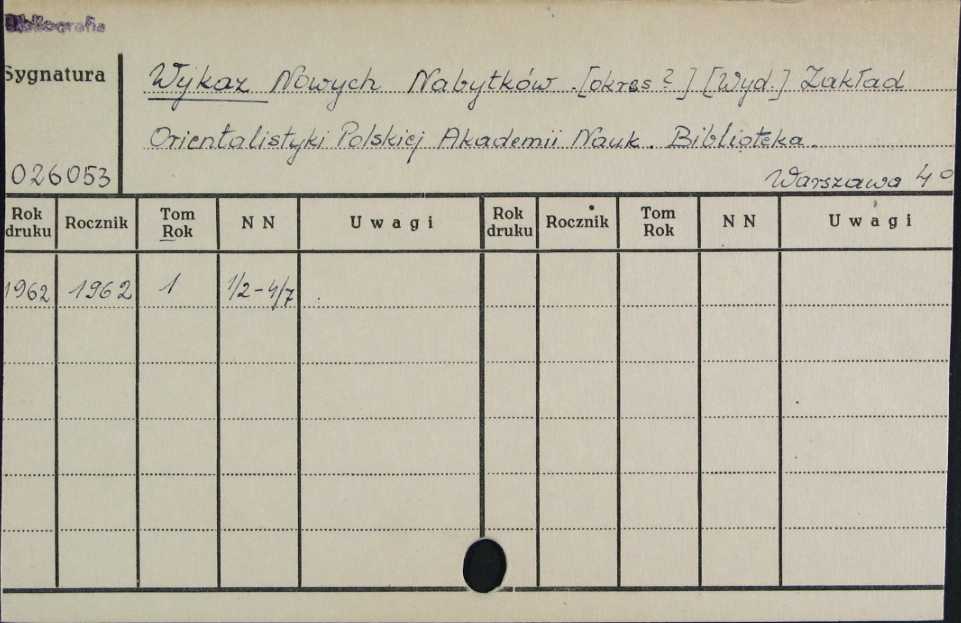 Bibliografia
Sygnatura
Wykaz Nowych Nabytków. [okres ?] [Wyd.] Zakład
Orientalistyki Polskiej Akademii Nauk. Biblioteka.
026053
Warszawa 4°
Rok druku Rocznik Tom Rok N N Uwagi Rok druku Rocznik Tom Rok N N Uwagi
1962 1962 1 1/2-4/7